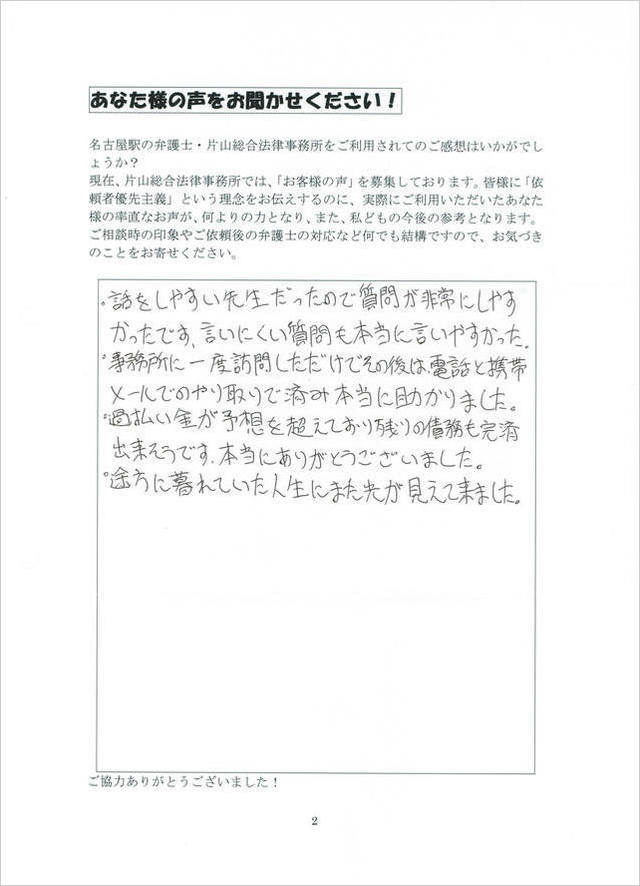 あなた様の声をお聞かせください！
名古屋駅の弁護士・片山総合法律事務所をご利用されてのご感想はいかがでし
ょうか？
現在、片山総合法律事務所では、「お客様の声」を募集しております。皆様に「依
頼者優先主義」という理念をお伝えするのに、実際にご利用いただいたあなた
様の率直なお声が、何よりの力となり、また、私どもの今後の参考となります。
ご相談時の印象やご依頼後の弁護士の対応など何でも結構ですので、お気づき
のことをお寄せください。
。話をしやすい先生だったので質問が非常にしやす
かったです、言いにくい質問も本当に言いやすかった。
。事務所に一度訪問しただけでその後は、電話と携帯
メールでのやり取りで済み本当に助かりました。
。過払い金が予想を超えており残りの債務も完済
出来そうです、本当にありがとうございました。
。途方に暮れていた人生にまた光が見えて来ました。
ご協力ありがとうございました！
2